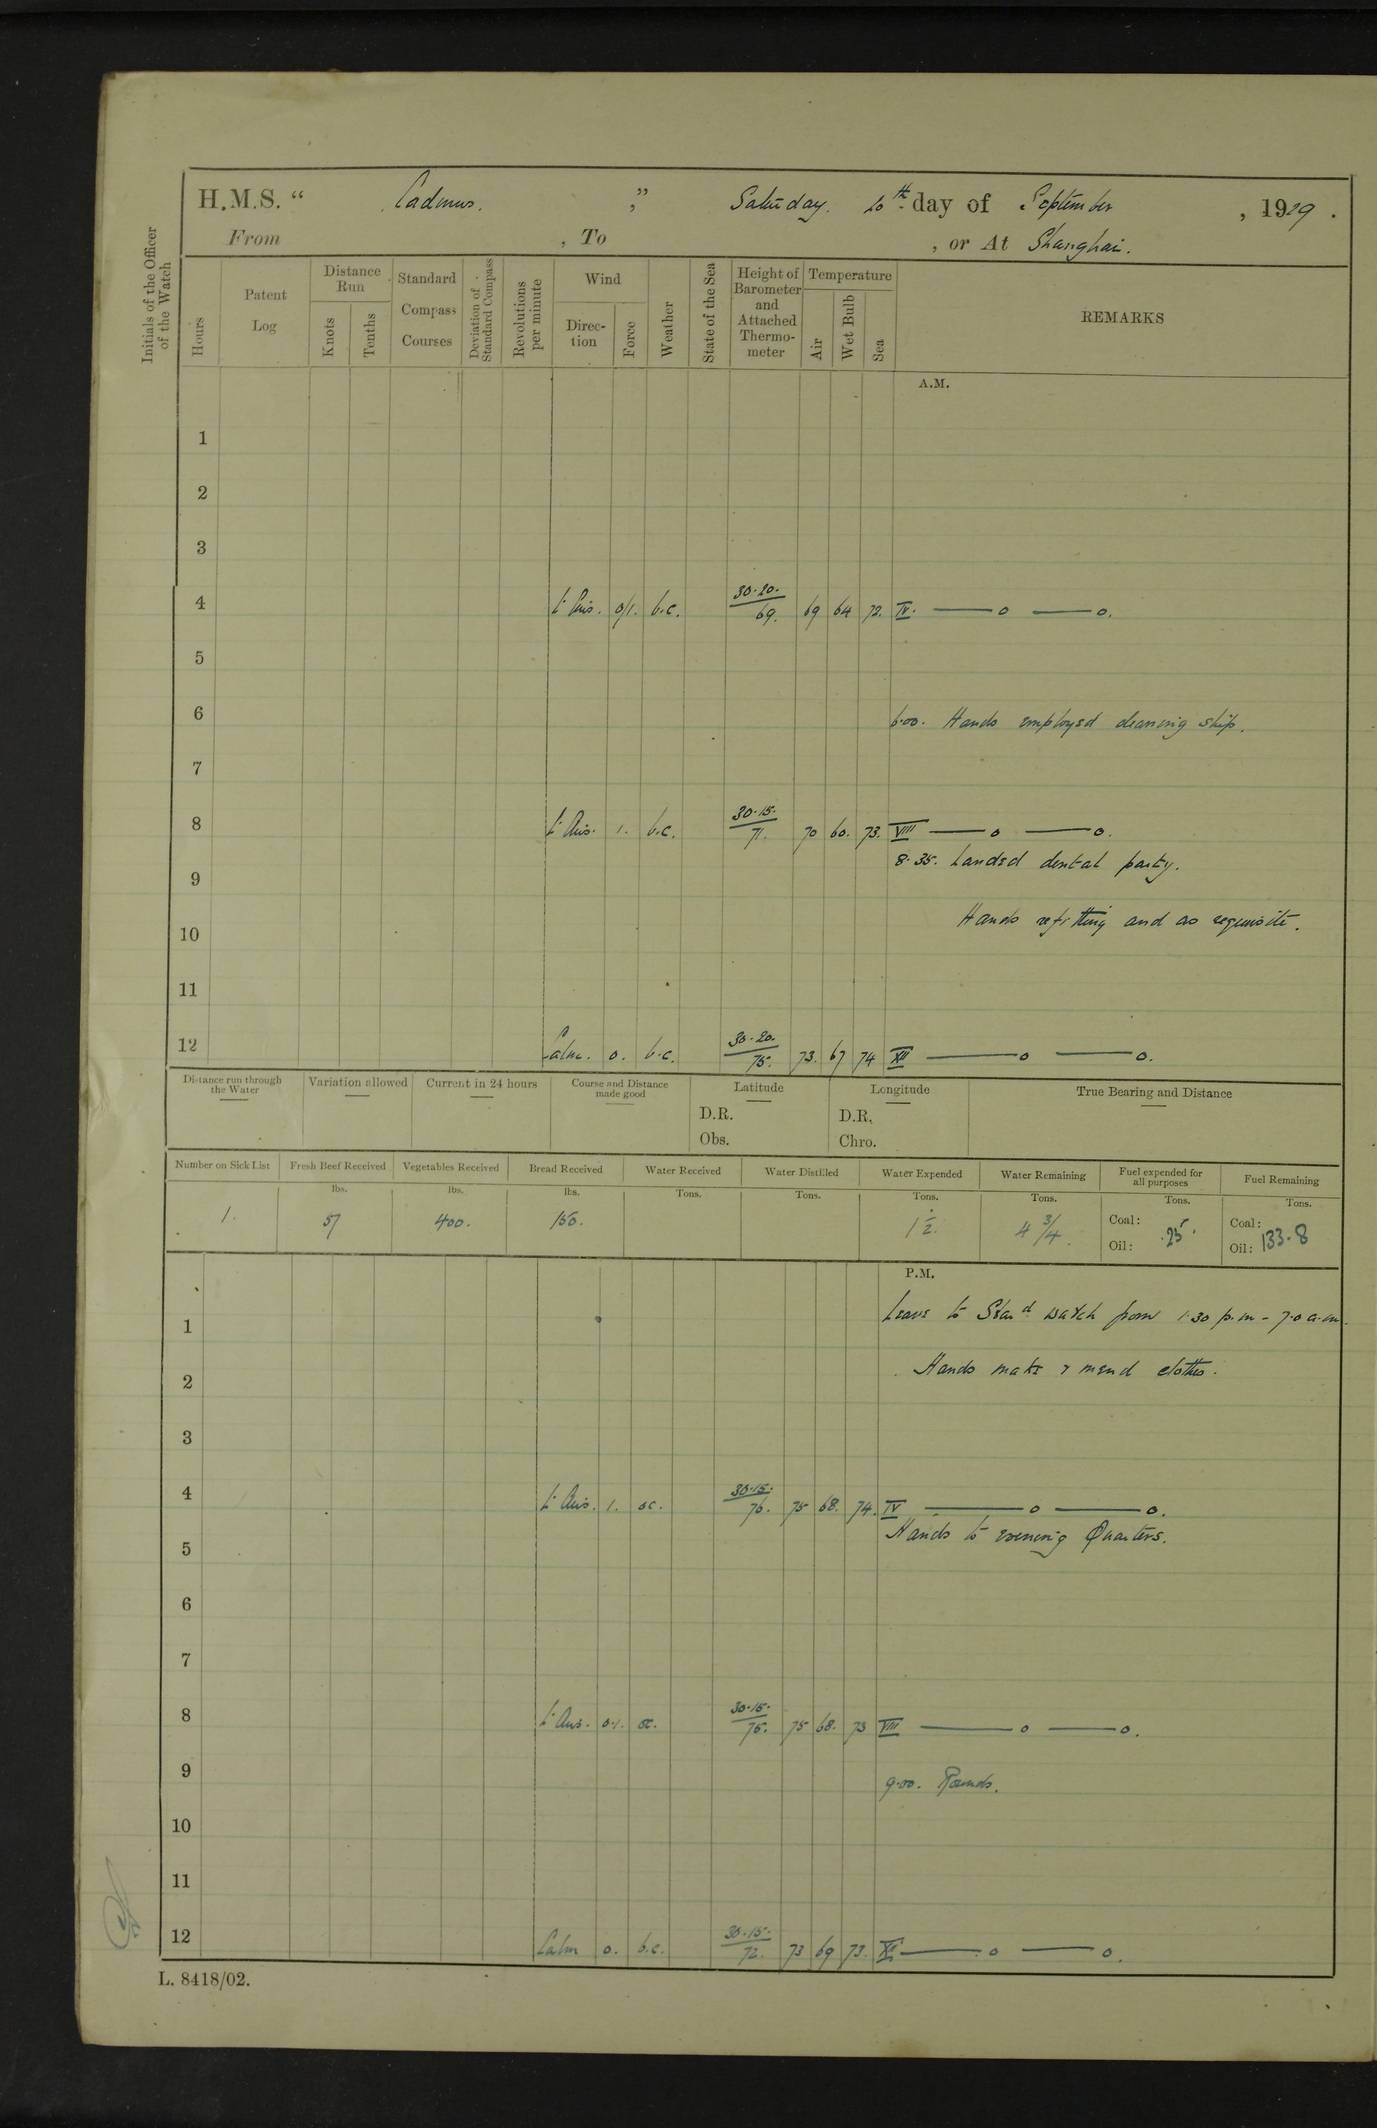 H.M.S. “ Cadmus. ” Saturday. 20th day of September, 1919.
From , To , or At Shanghai.
Initials of the Officer of the Watch
Hours
Patent Log
Distance Run
Knots
Tenths
Standard Compass Courses
Deviation of Standard Compass
Revolutions per minute
Wind
Direc-tion
Force
Weather
State of the Sea
Height of Barometer and Attached Thermo-meter
Temperature
Air
Wet Bulb
Sea
REMARKS
A.M.
1
2
3
4 Lt Airs. 0/1. b.c. 30.20. 69. 69 64 72. IV. —— o —— o.
5
6 6.00. Hands employed cleaning ship.
7
8 Lt Airs. 1. b.c. 30.15. 71. 70 60. 73. VIII —— o —— o.
8.35. Landed dental party.
9
Hands refitting and as requisite.
10
11
12 Calm. 0. b.c. 30.20. 75. 73. 67 74 XII —— o —— o.
Distance run through the Water
Variation allowed
Current in 24 hours
Course and Distance made good
Latitude
D.R.
Obs.
Longitude
D.R.
Chro.
True Bearing and Distance
Number on Sick List
1.
Fresh Beef Received
lbs.
57
Vegetables Received
lbs.
400.
Bread Received
lbs.
150.
Water Received
Tons.
Water Distilled
Tons.
Water Expended
Tons.
1 1/2.
Water Remaining
Tons.
4 3/4.
Fuel expended for all purposes
Tons.
Coal:
Oil:
.25.
Fuel Remaining
Tons.
Coal:
Oil: 133.8
P.M.
Leave to Stard watch from 1.30 p.m - 7.0 a.m.
1
2 Hands make & mend clothes.
3
4 Lt Airs. 1. oc. 30.15. 76. 75 68. 74. IV —— o —— o.
Hands to evening Quarters.
5
6
7
8 Lt Airs. 0.1. oc. 30.15. 75. 75 68. 73 VIII —— o —— o.
9 9.00. Rounds.
10
11
12 Calm 0. b.c. 30.15. 72. 73 69 73. XII —— o —— o.
L. 8418/02.